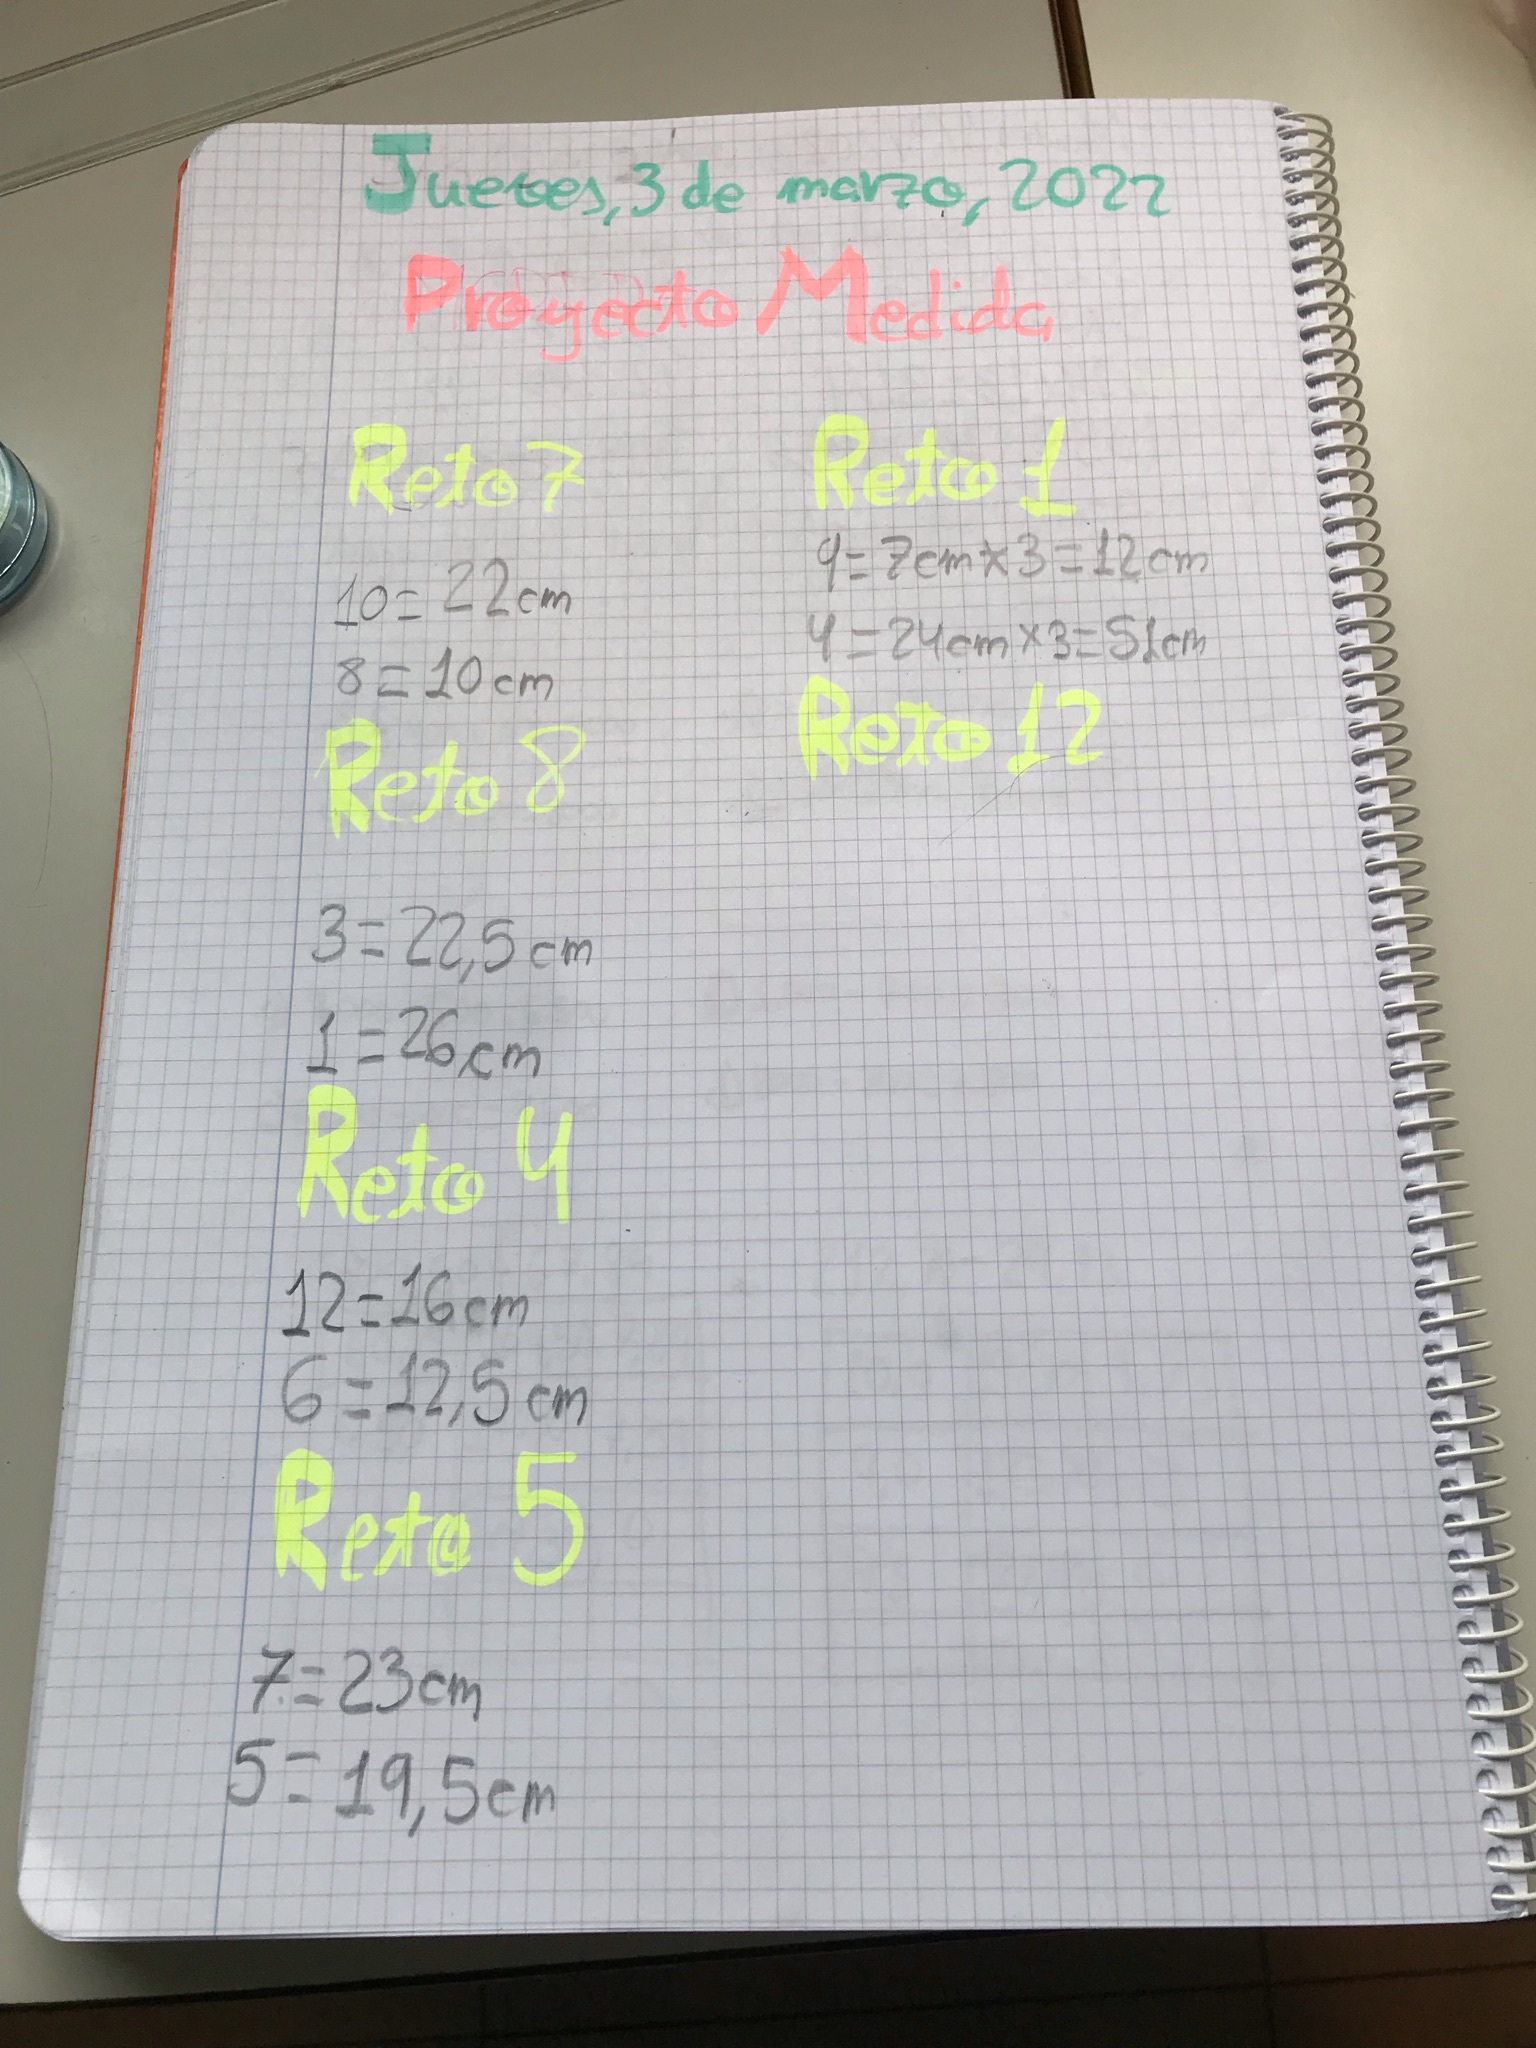 Jueves, 3 de marzo, 2022
Proyecto Medida
Reto 7
10=22cm
8=10cm
Reto 8
3=22,5cm
1=26cm
Reto 4
12=16cm
6=12,5cm
Reto 5
7=23cm
5=19,5cm
Reto 1
9=7cm×3=12cm
4=24cm×3=51cm
Reto 12